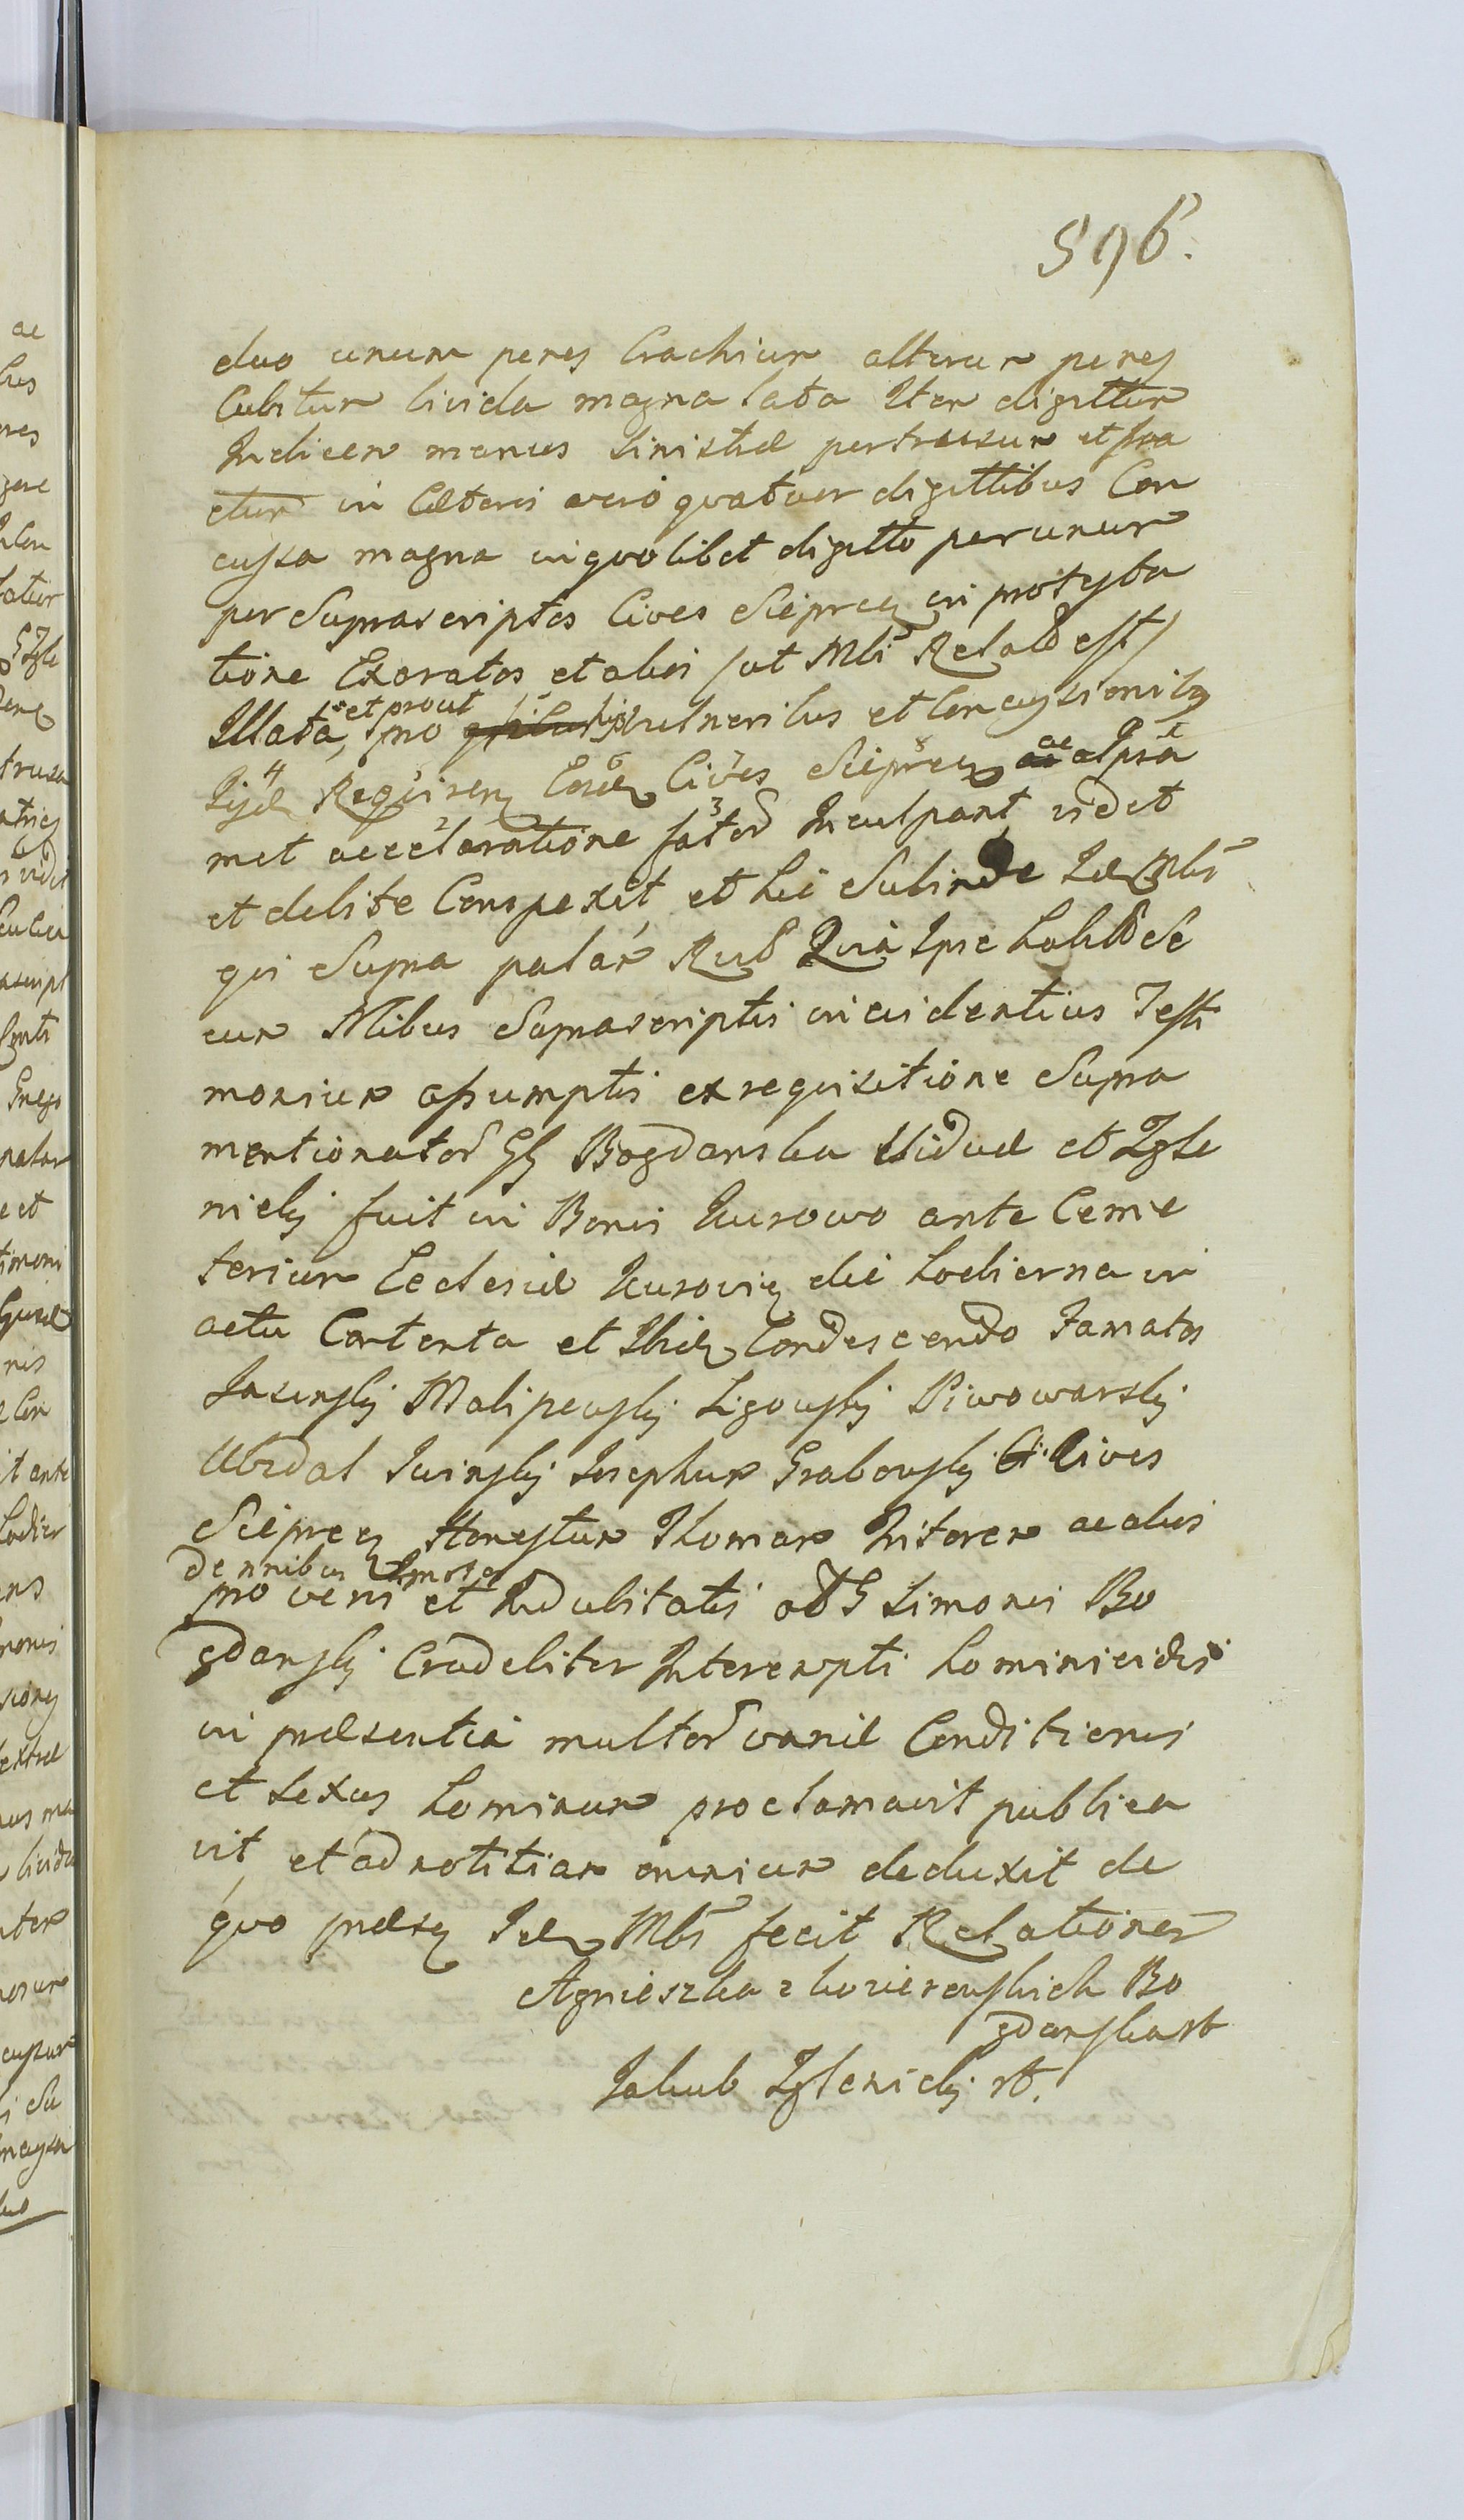 596.
duo unum penes Brachium alterum penes
Cubitum livida magna lata Item digittum
Indicem manus sinistræ pertrusum et fra
ctum in Cæteris vero quatuor digittibus Con
cussa magna in quolibet digitto per unum
per Suprascriptos Cives Sieprcen in protesta
tione Exaratos et alios /ut Mli Relatum est/
Illata, et prout pro vulneribus et Concussionibus
Iisdem Requiren Eosdem Cives Sieprcen ac Ipsa
met acclaratione fator Inculpant, vidit
et debite Conspexit, et hic Subinde Idem Mlis
qui Supra palam Recog Quia Ipse habita Se
cum Nlibus Suprascriptis in evidentius Testi
monium assumptis ex requisitione Supra
mentionator GG Bogdanska Viduæ et Zgle
nicki fuit in Bonis Kurowo ante Ceme
terium Ecclesiæ Kurovien die hodierna in
actu Contenta et Ibidem Condescendo Famatos
Jasinski Malipenski Ligowski Piwowarski
Wizdal Kwinski Josephum Grabowski Cives
Sieprcen Honestum Thomam Initorem ac alios
de nnibus
pro veris et Indubitatis olim G Simonis Bo
gdanski Crudeliter Interempti hominicidis
in præsentia multor variæ Conditionis
et Sexus hominum proclamavit publica
vit, et ad notitiam omnium deduxit de
quo præsen Idem Mlis fecit Relationem
Agnieszka z Bo
gdanska
Jakub Zglenicki